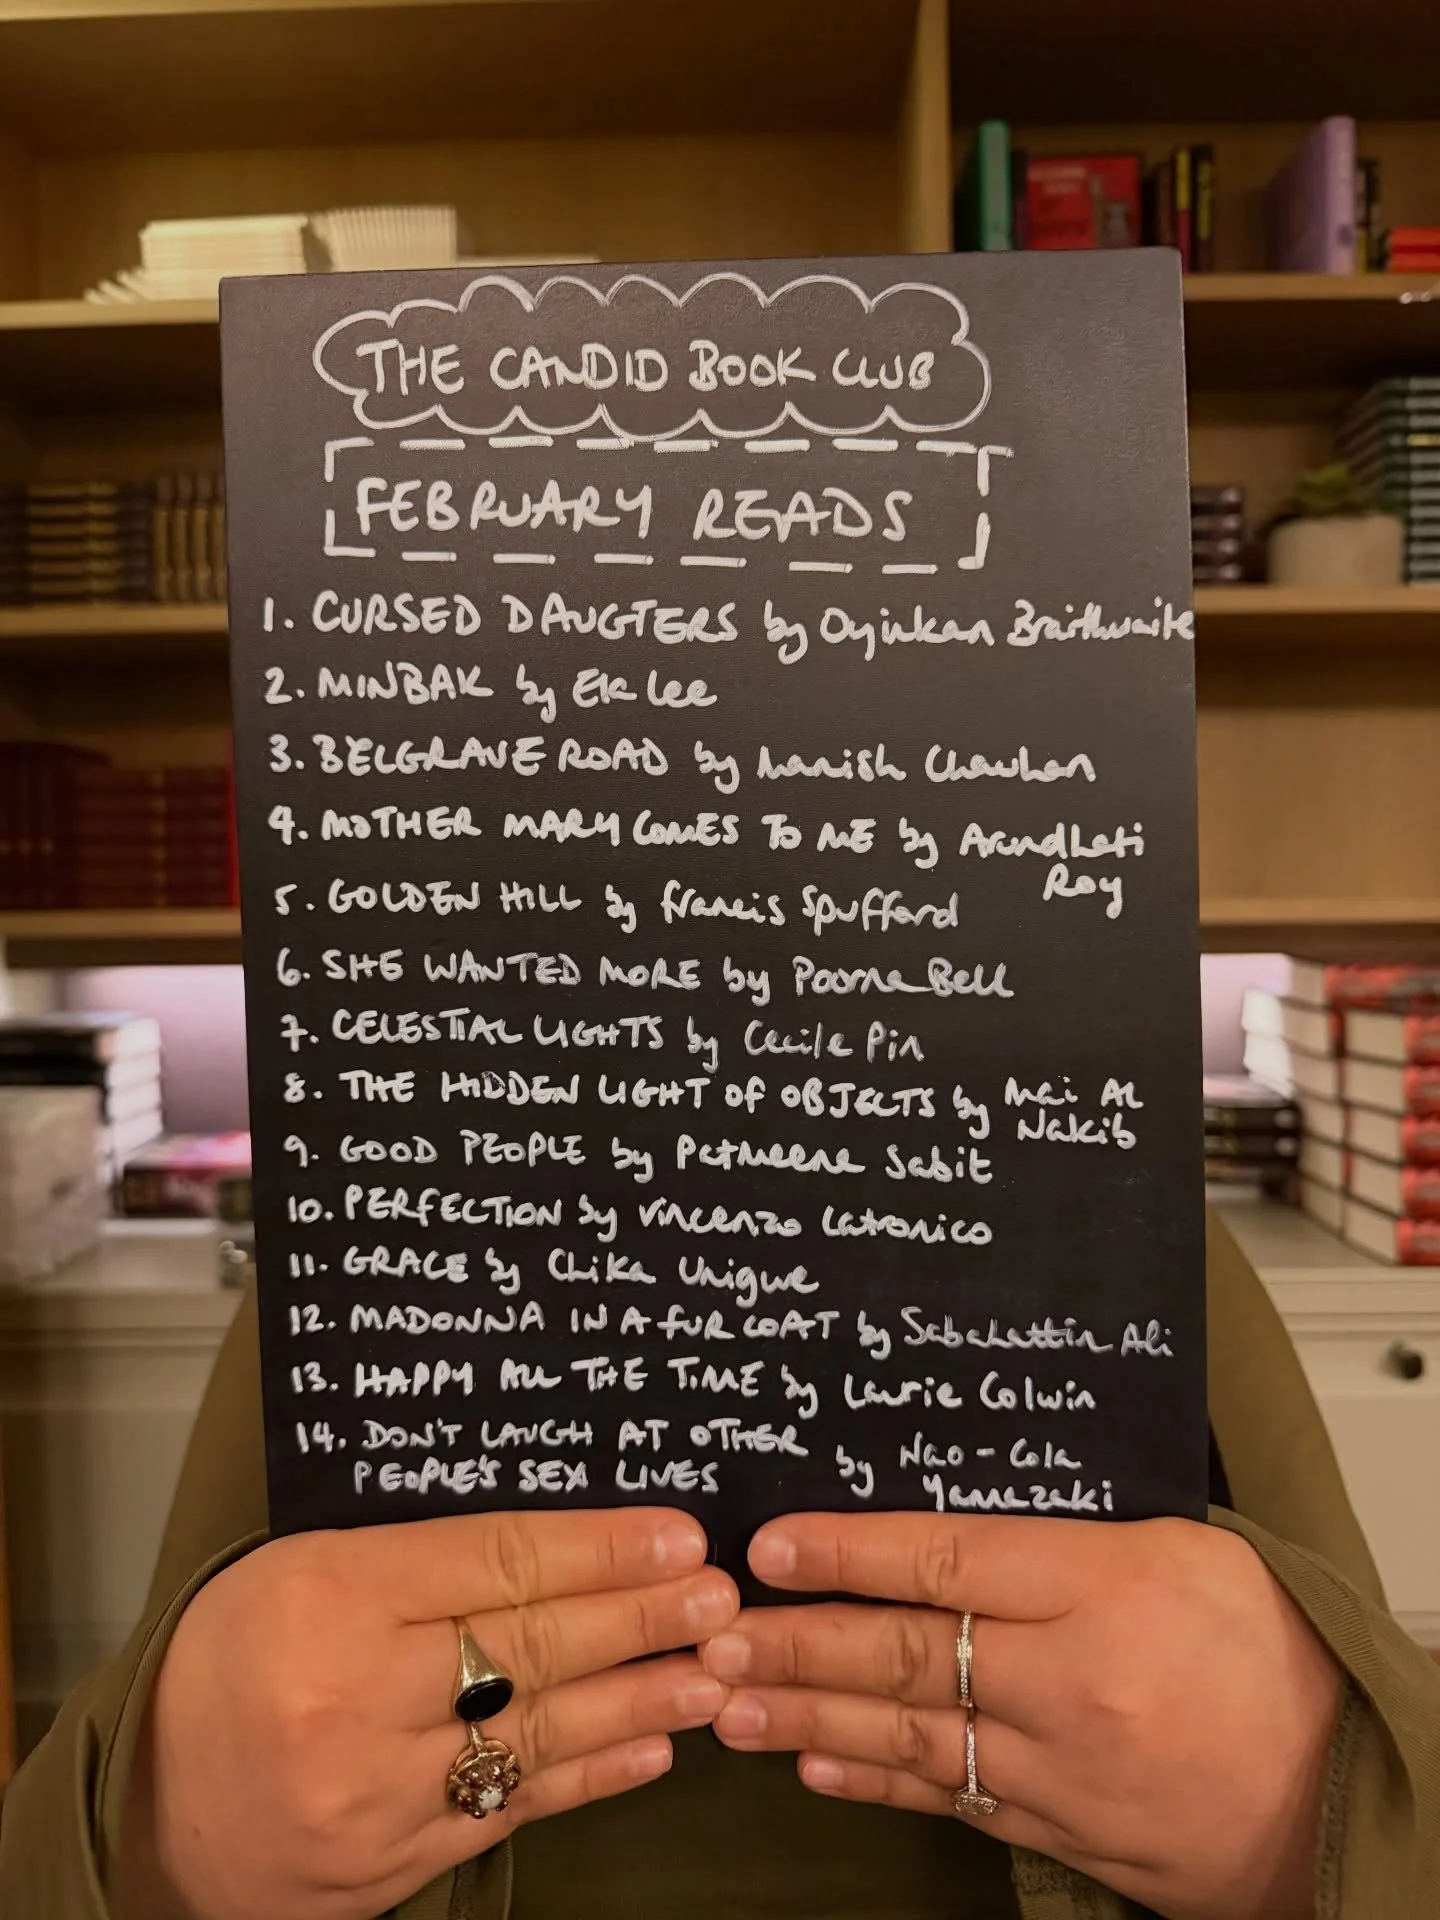 THE CANDID BOOK CLUB
FEBRUARY READS
1. CURSED DAUGTERS by Oyinkan Braithwaite
2. MINBAK by Ela Lee
3. BELGRAVE ROAD by Manish Chauhan
4. MOTHER MARY COMES TO ME by Arundhati
Roy
5. GOLDEN HILL by Francis Spufford
6. SHE WANTED MORE by Poorna Bell
7. CELESTIAL LIGHTS by Cecile Pin
8. THE HIDDEN LIGHT OF OBJECTS by Mai Al
Nakib
9. GOOD PEOPLE by Patmeena Sabit
10. PERFECTION by Vincenzo Latronico
11. GRACE by Chika Unigwe
12. MADONNA IN A FUR COAT by Sabahattin Ali
13. HAPPY ALL THE TIME by Laurie Colwin
14. DON'T LAUGH AT OTHER
PEOPLE'S SEX LIVES by Nao-Cola
Yamazaki